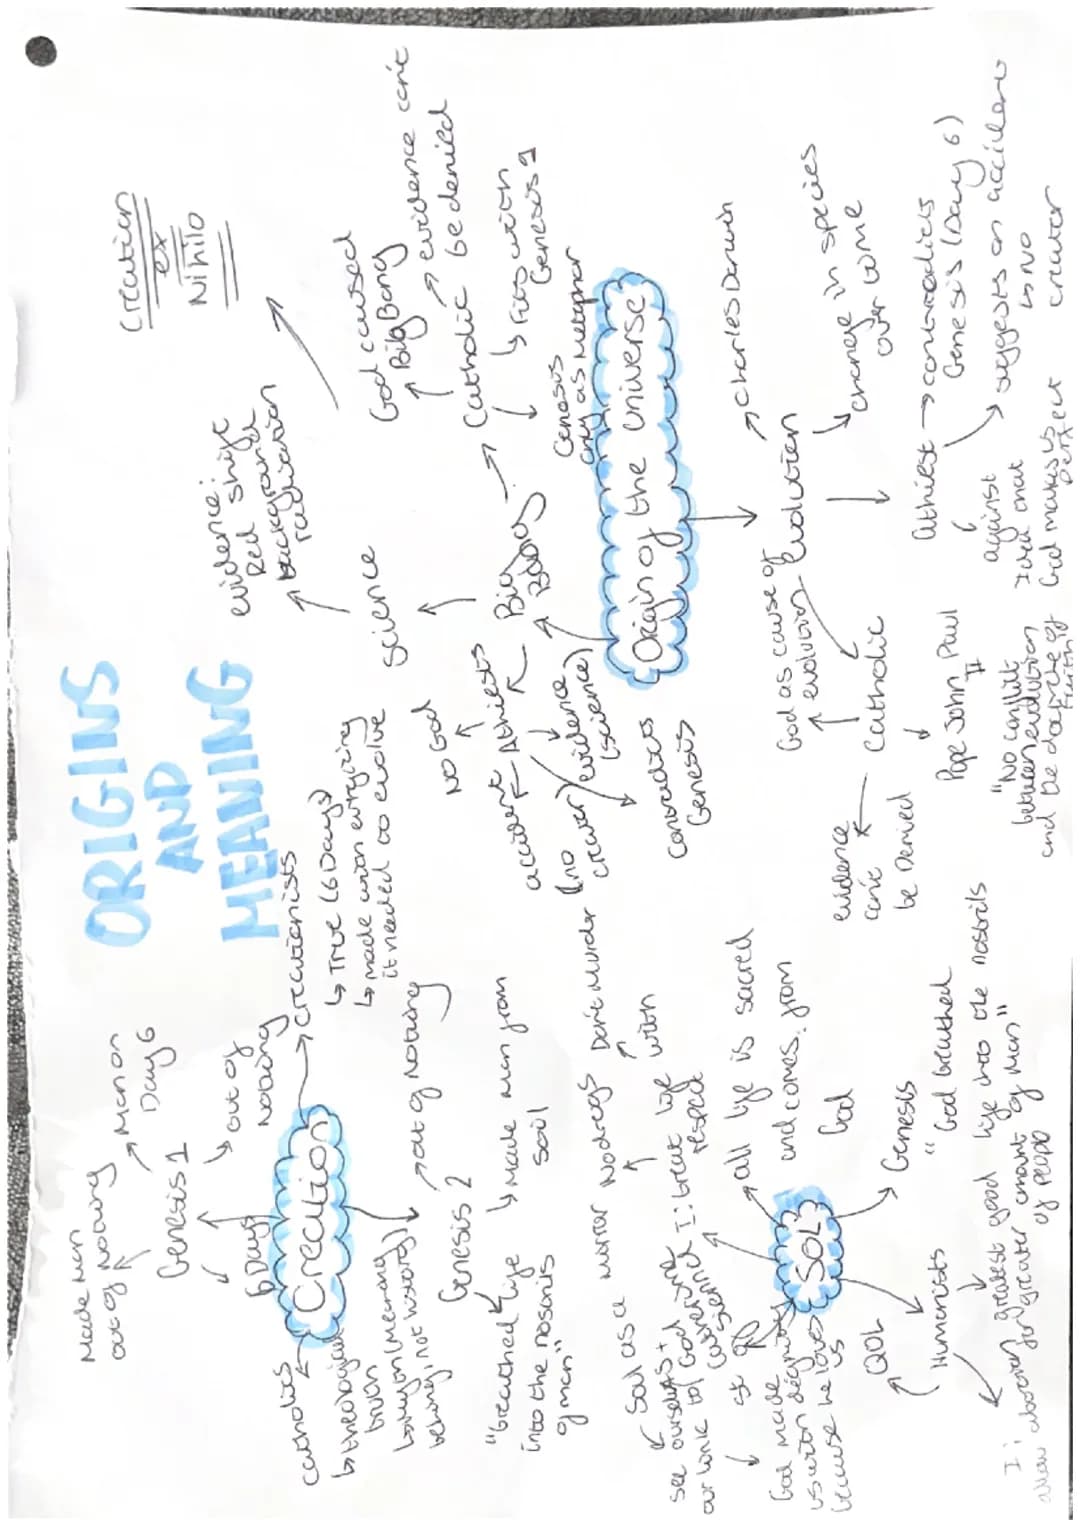 ORIGINS
AND
MEANING
Creation
ex
Nihilo
Creation
6 Days
Genesis 1
Made Man
out of nothing
Man on
Day 6
out of
nothing
creationists
↳ True (6 Days)
↳ made with everything
it needed to evolve
Catholics
↳ theological
truth
↳ myth (meaning
behind, not history)
Genesis 2
out of nothing
↳ Made man from
soil
"breathed life
into the nostrils
of man"
Origin of the universe
Big
Bang
science
evidence:
Red shift
background
radiation
Catholic
God caused
Big Bang
evidence can't
be denied
↳ Fits with
Genesis 1
Genesis
only as metaphor
Athiests
No God
accident
(no
creator)
evidence
(science)
contradicts
Genesis
Evolution
Charles Darwin
change in species
over time
Athiest → contradicts
Genesis (Day 6)
suggests an accident
↳ no
creator
against
Idea that
God makes us
perfect
Catholic
God as cause of
evolution
evidence
can't
be Denied
Pope John Paul
II
"No conflict
between evolution
and the doctrine of
faith
SOL
all life is sacred
and comes from
God
Genesis
"God breathed
life into the nostrils
of man"
Humanists
QOL
greatest good
for greater amount
of people
I:
allow abortion
God made
us with dignity
because he loves
us
I: treat life
with
respect
No drugs
Don't Murder
Soul as a mirror
see ourselves +
our link to God